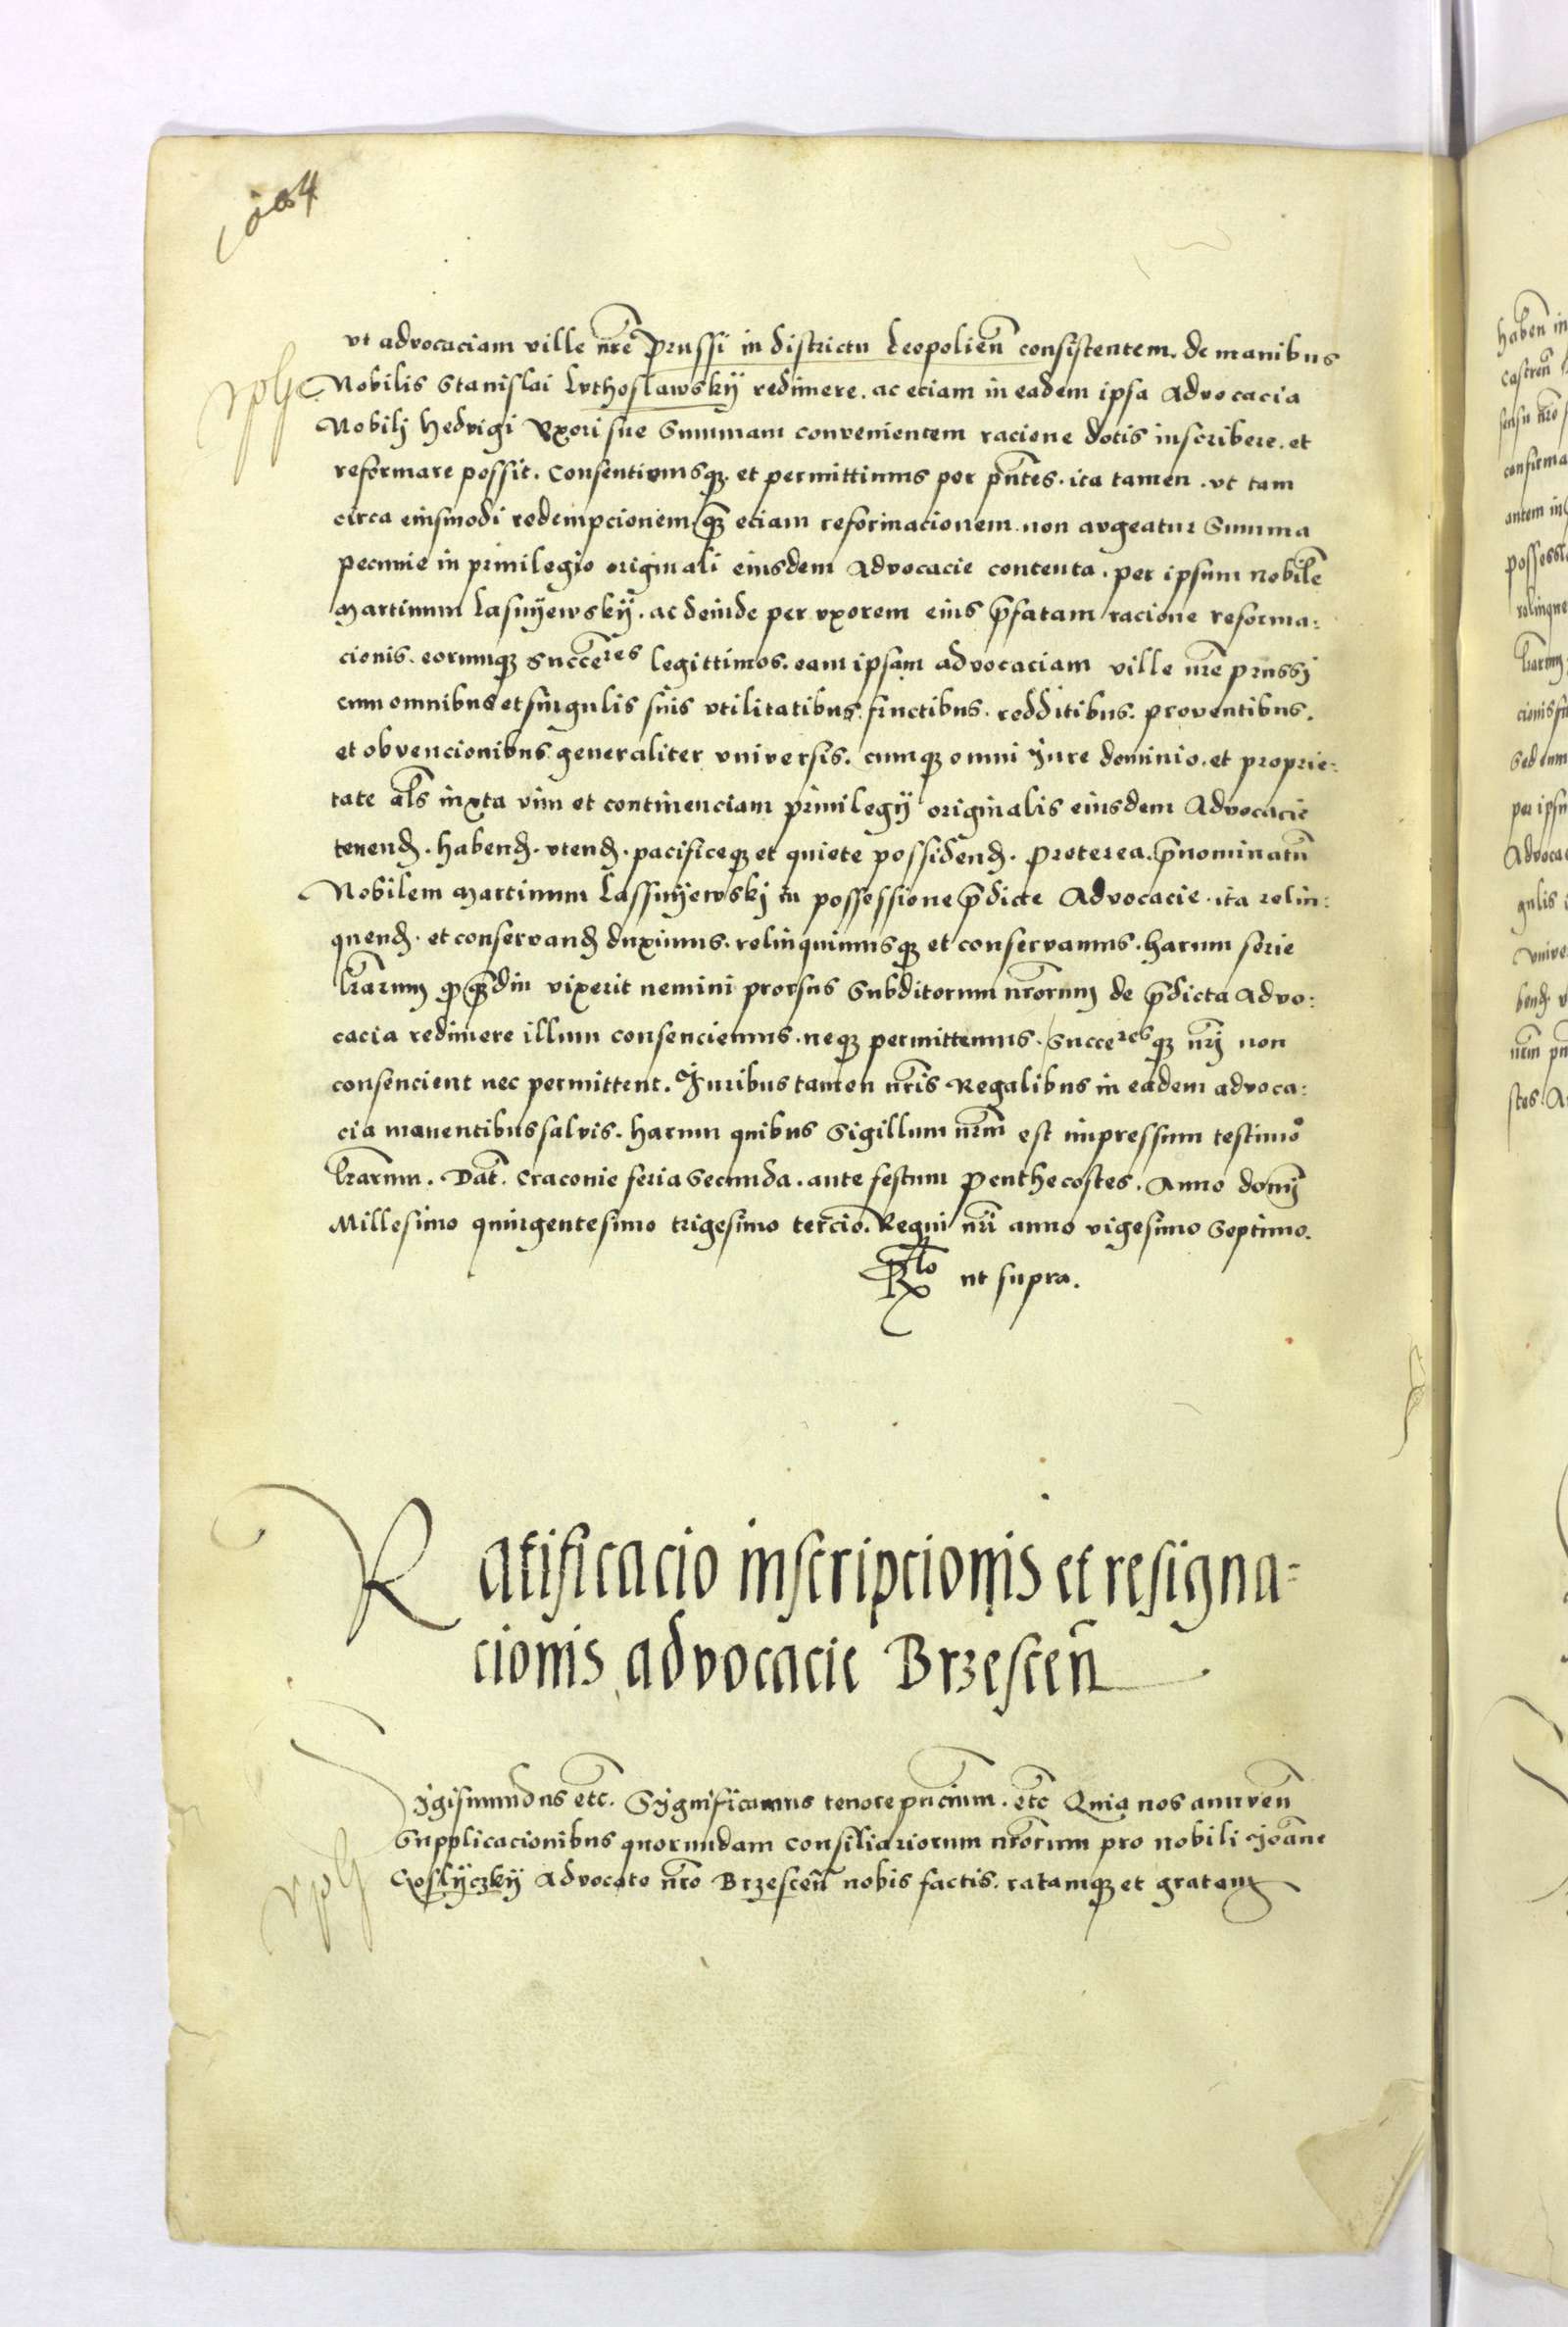 104
vt advocaciam ville nr̃e Prussi in districtu Leopolien̄ consistentem. de manibus
Nobilis Stanislai Lvthoslawskÿ redimere. ac eciam in eadem ipsa Advocacia
Nobilj Hedvigi Vxori sue Summam convenientem racione dotis inscribere. et
reformare possit. Consentimusqȝ. et permittimus per pn̄tes. ita tamen. vt tam
circa eiusmodi redempcionem qȝ̄ eciam reformacionem non avgeatur Summa
pecunie in priuilegio originali eiusdem Advocacie contenta. per ipsum nobilē
Martinum Lasnÿewskÿ. ac deinde per vxorem eius p̄fatam racione reforma:
cionis. eorumqȝ Succēres legittimos. eam ipsam advocaciam ville nr̃e Prussj
cum omnibus et singulis suis vtilitatibus. fructibus. redditibus. proventibus.
et obvencionibus generaliter vniversis. cumqȝ omni Jure dominio. et proprie:
tate als̄ iuxta vim et continenciam priuilegÿ originalis eiusdem Advocacie
tenenđ. habenđ. vtenđ. pacificeqȝ et quiete possidenđ. Preterea. p̄nominatū
Nobilem Martinum Lassnÿewskj in possessione p̄dicte Advocacie. ita relin:
quenđ. et conservanđ duximus. relinquimusqȝ et conservamus. harum serie
lr̄arum qȝ qȝ̄diu vixerit nemini prorsus Subditorum nr̄orum de p̄dicta Advo:
cacia redimere illum consenciemus. neqȝ permittemus. Succeresqȝ nr̄j non
consencient nec permittent. Juribus tamen nr̄is Regalibus in eadem advoca:
cia manentibus salvis. Harum quibus Sigillum nr̄m est impressum testimo
lr̄arum. Dat̄. Craconie feria Secunda. ante festum Penthecostes. Anno domj̄
Millesimo quingentesimo trigesimo tercio. Regni nr̄i anno vigesimo Septimo.
Rlo ut supra.
Ratificacio inscripcionis et resigna=
cionis advocacie Brzescen̄
Sÿgismundus etc̄. Sÿgnificamus tenore pn̄cium. etc̄ Quia nos annven̄
Supplicacionibus quorundam consiliariorum nr̄orum pro nobili Joāne
Coslÿczkÿ Advocato nr̄o Brzescen̄ nobis factis. ratamqȝ et gratam